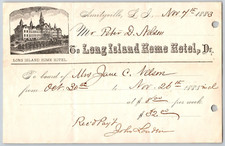 Amityville, L. I., Nov 7th 1883
Mr Peter D. Nelson
To Long Island Home Hotel, Dr.
LONG ISLAND HOME HOTEL.
To board of Mrs Jane C. Nelson
from Oct. 30th to Nov 26th 1883
at $ 8.00 per week
$ 32.00
Rec'd Pay't
John